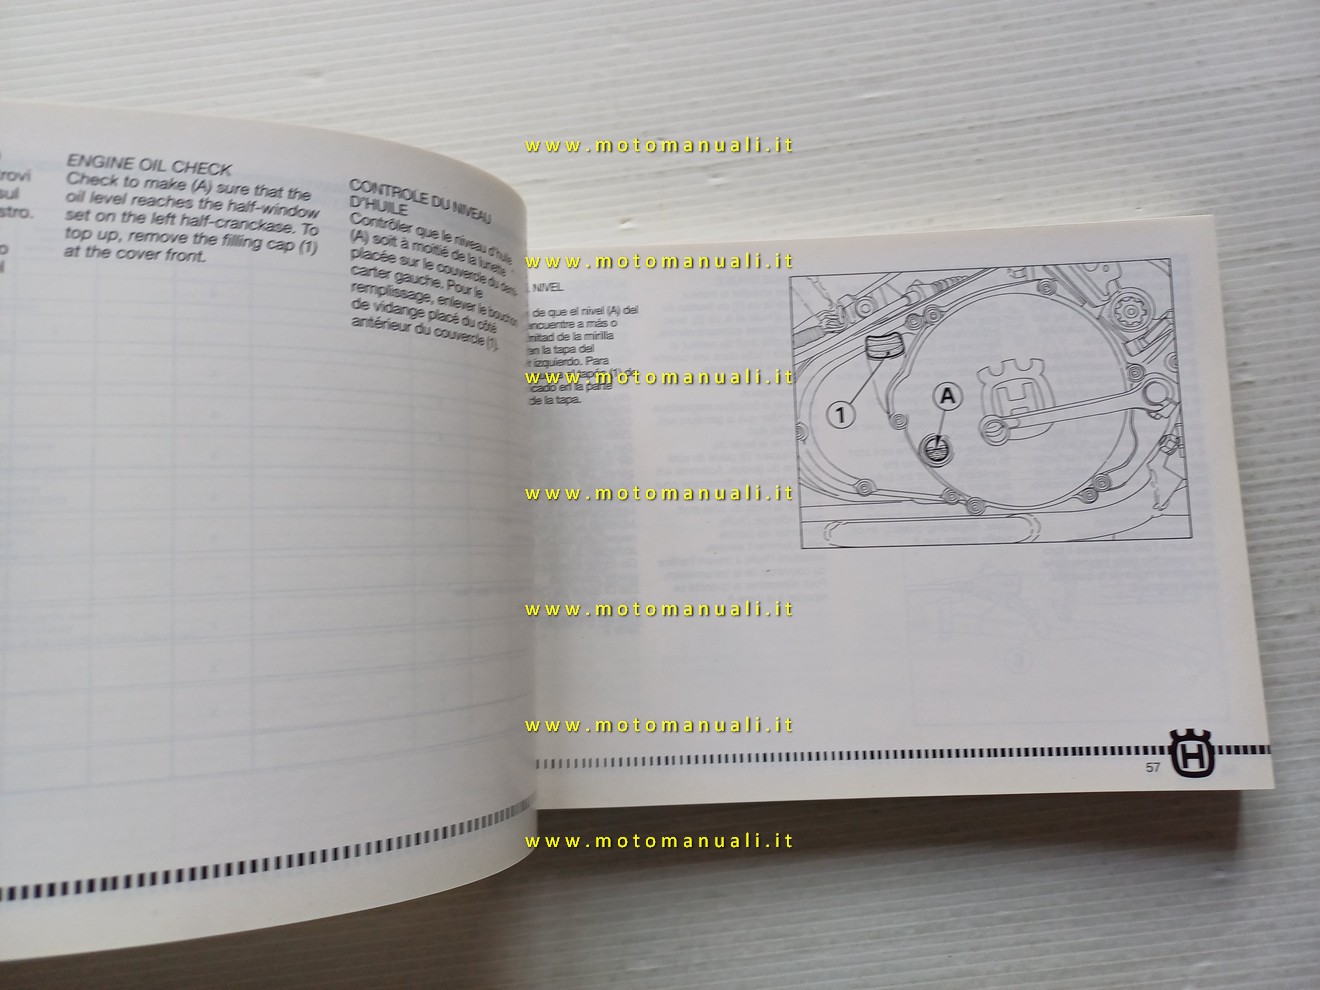 rovi
sul
stro.
ENGINE OIL CHECK
Check to make (A) sure that the
oil level reaches the half-window
set on the left half-cranckase. To
top up, remove the filling cap (1)
at the cover front.
CONTROLE DU NIVEAU
D'HUILE
Contrôler que le niveau d'huile
(A) soit à moitié de la lunette
placée sur le couvercle du demi-
carter gauche. Pour le
remplissage, enlever le bouchon
de vidange placé du côté
antérieur du couvercle (1).
NIVEL
de que el nivel (A) del
ncuentre a más o
mitad de la mirilla
en la tapa del
r izquierdo. Para
(1) de
cado en la parte
de la tapa.
1
A
H
57
H
www.motomanuali.it
www.motomanuali.it
www.motomanuali.it
www.motomanuali.it
www.motomanuali.it
www.motomanuali.it
www.motomanuali.it